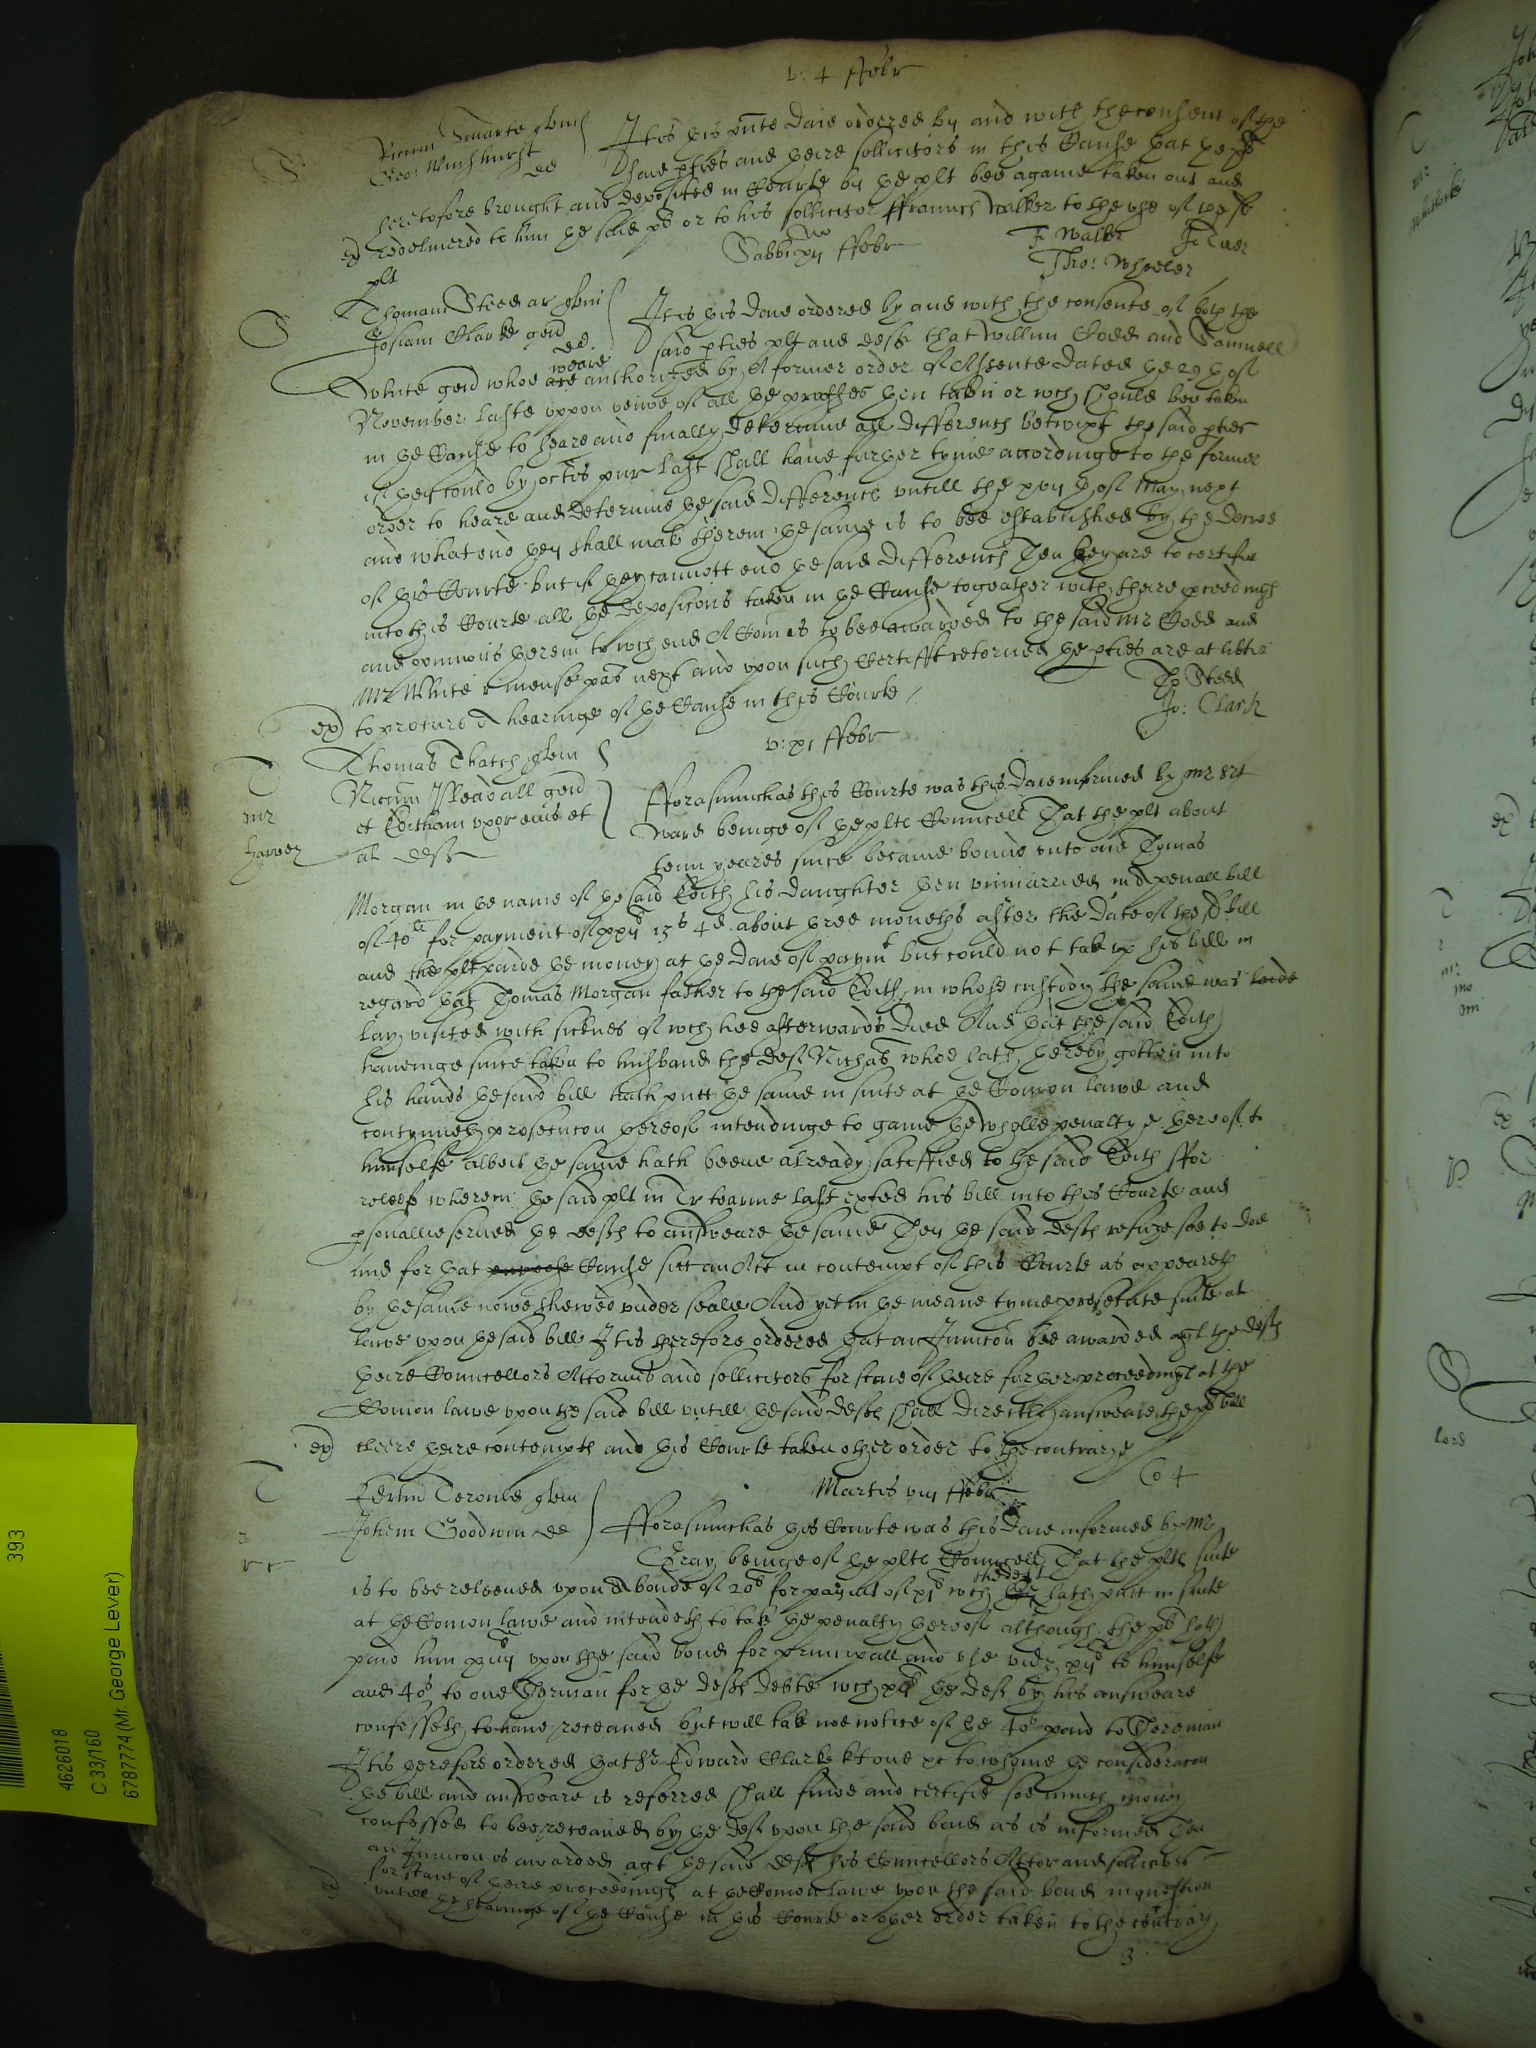 v: 4 ffebr
Smarte
Geo: Wushhurst
It is this pnte daie ordered by and with the consent of the
said pties and theire sollicitors in this Cause that the
heretofore brought and deposited in Courte by the plt bee againe taken out and
ex redelivered to him the said or to his sollicitor ffrauncis Walker to the vse of the
plt
Sabbi ffebr
F Walker
Tho: Wheeler
Thomam Steed ar
Josiam Clarke gen
It is this daie ordered by and with the consente of both the
said pties plt and deft that Willim Code and Samuell
White gen whoe weare authorized by A former order of Assente dated the 29th of
November laste vppon veiwe of all the then taken or wch should bee taken
in the Cause to heare and finally determine all differencs betwixt the said pties
if they could by last shall haue further tyme accordinge to the former
order to heare and determine the said differencs vntill the of May next
and what end they shall make therein the same is to bee established by the decree
of this Courte but if they cannott end the said differencs Then they are to certifie
into this Courte all the deposicons taken in the Cause togeather with theire pceedings
and opinions therein to wch end A Com is to bee awarded to the said Mr Code and
Mr White next and vpon such Certifft retorned the pties are at libtie
ex to procure a hearinge of the Cause in this Courte
Tho Steed
Jo: Clark
v: xi ffebr
Thomas Thatch
T
Nicum Pleadall gen
et Edetham vxor eius et
al deft
mr
harvey
fforasmuch as this Courte was this daie informed by mr
Ward beinge of the plts Councell That the plt about
tenn yeares since became bound vnto one Thomas
Morgan in the name of the said Edith his daughter then vnmarried in a penall bill
of 40li for payment of 13s 4d about three moneths after the date of the sd bill
and the plt paide the money at the daie of paymt but could not take vp his bill in
regard that Thomas Morgan father to the said Edith in whose custody the same was
lay visited with sicknes of wch hee afterwards died And that the said Edith
haueinge since taken to husband the deft Nichas whoe hath thereby gotten into
his hands the said bill hath putt the same in suite at the Comon lawe and
contynueth prosecucon thereof intendinge to gaine the wholle penalty thereof to
himselfe albeit the same hath beene already satisfied to the said Edith ffor
releefe wherein the said plt in Tr tearme last exhed his bill into this Courte and
psonallie serued the defts to answeare the same They the said defts refuse soe to doe
and for that Cause sitt an Att in contempt of this Courte as appeareth
by the same nowe shewed vnder seale And yet in the meane tyme prosecute suite at
lawe vpon the said bill It is therefore ordered that an Iniuncon bee awarded agt the defts
theire Councellors Attornies and sollicitors for staie of theire further proceedings at the
Comon lawe vpon the said bill vntill the said defts shall directly answeare the sd bill
ex cleere theire contempts and this Courte taken other order to the contrarye
Co 4
T
Martis viij ffebr
Johem Goodwin de
fforasmuch as this Courte was this daie informed by mr
Gray beinge of the plts Councell That the plts suite
is to bee releeued vpon a bonde of 20li for paymt of wch the deft hath putt in suite
at the Comon lawe and intendeth to take the penalty thereof although the plt hath
paid him vpon the said bond for principall and vse to himselfe
and 40s to one Jerman for the defts debte wch the deft by his answeare
confesseth to haue receaued but will take noe notice of the 40s paid to Jereman
It is therefore ordered that Sr Edward Clarke kt one to whome the consideracon
the bill and answeare is referred shall finde and certifie soe much mony
confessed to bee receaued by the deft vpon the said bond as is informed Then
an Iniuncon is awarded agt the said deft his Councellors Attor and sollicitors
for staie of theire proceedings at the Comon lawe vpon the said bond in question
vntill the hearinge of the Cause in this Courte or other order taken to the contrary
3
393
4626018
C 33/160
6787774 (Mr. George Lever)